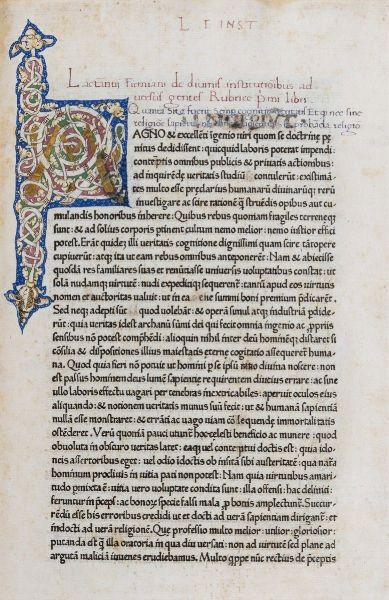 L. I. INST
Lactantii Firmiani de diuinis institutionibus ad
uersus gentes Rubrice primi libri
AGNO & excellēti īgenio uiri quom se doctrinę pe
nitus dedidissent: quicquid laboris poterat impendi:
contēptis omnibus publicis & priuatis actionibus:
ad inquirēdę ueritatis studiū contulerūt: existimā
tes multo esse pręclarius humanarū diuinarūq; rerū
inuestigare ac scire rationē q̄ struēdis opibus aut cu
mulandis honoribus inherere: Quibus rebus quoniam fragiles terreneq;
sunt: & ad solius corporis ptinēt cultum nemo melior: nemo iustior effici
potest. Erāt quidē illi ueritatis cognitione dignissimi quam scire tātopere
cupiuerūt: atq; ita ut eam rebus omnibus anteponerēt. Nam & abiecisse
quosdā res familiares suas et renūtiasse uniuersis uoluptatibus constat: ut so
lā nudamq; uirtutē: nudi expeditiq; sequerent: tantū apud eos uirtutis
nomen et auctoritas ualuit: ut in ea esse summi boni premium p̄dicarēt.
Sed neq; adepti sūt quod uolebāt: & operā simul atq; industriā pdide
rūt: quia ueritas idest archanū sūmi dei qui fecit omnia ingenio ac ppriis
sensibus nō potest comphēdi: alioquin nihil inter deū hominēq; distaret si
cōsilia & dispositiones illius maiestatis eterne cogitatio assequeret huma
na. Quod quia fieri nō potuit ut homini p se ipsū ratio diuina nosceret: non
est passus hominem deus lumē sapientię requirentem diutius errare: ac sine
ullo laboris effectu uagari per tenebras inextricabiles: aperuit oculos eius
aliquando: & notionem ueritatis munus suū fecit: ut & humanā sapientiā
nullā esse monstraret: & errāti ac uago uiam cōsequendę immortalitatis
ostēderet. Verū quoniā pauci utunt hoc celesti beneficio ac munere: quod
obuoluta in obscuro ueritas latet: eaq; uel contēptui doctis est: quia ido
neis assertoribus eget: uel odio īdoctis ob insitā sibi austeritatē: quā natā
hominum procliuis in uitia pati non potest: Nam quia uirtutibus amari
tudo pmixta ē: uitia uero uoluptate condita sunt: illa offensi: hac deliniti:
feruntur in p̄cepš: ac bonoꝝ specie falsi mala p bonis amplectunt. Succur
rēdū esse his erroribus credidi ut et docti ad uerā sapientiam dirigant: et
indocti ad ueram religionē. Que professio multo melior: utilior: gloriosior:
putanda est q̄ illa oratoria in qua diu uersati: non ad uirtutē sed plane ad
argutā maliciā iuuenes erudiebamus. Multo qppe nūc rectius de p̄ceptis